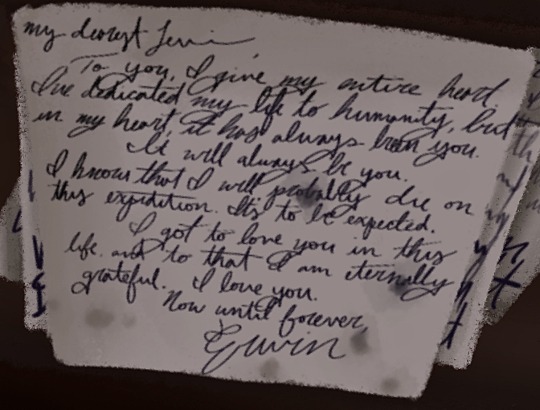 my dearest Levi,
To you, I give my entire heart.
I've dedicated my life to humanity, but
in my heart, it has always been you.
It will always be you.
I know that I will probably die on
this expedition. It's to be expected.
I got to love you in this
life. and to that I am eternally
grateful. I love you.
Now until forever,
Erwin